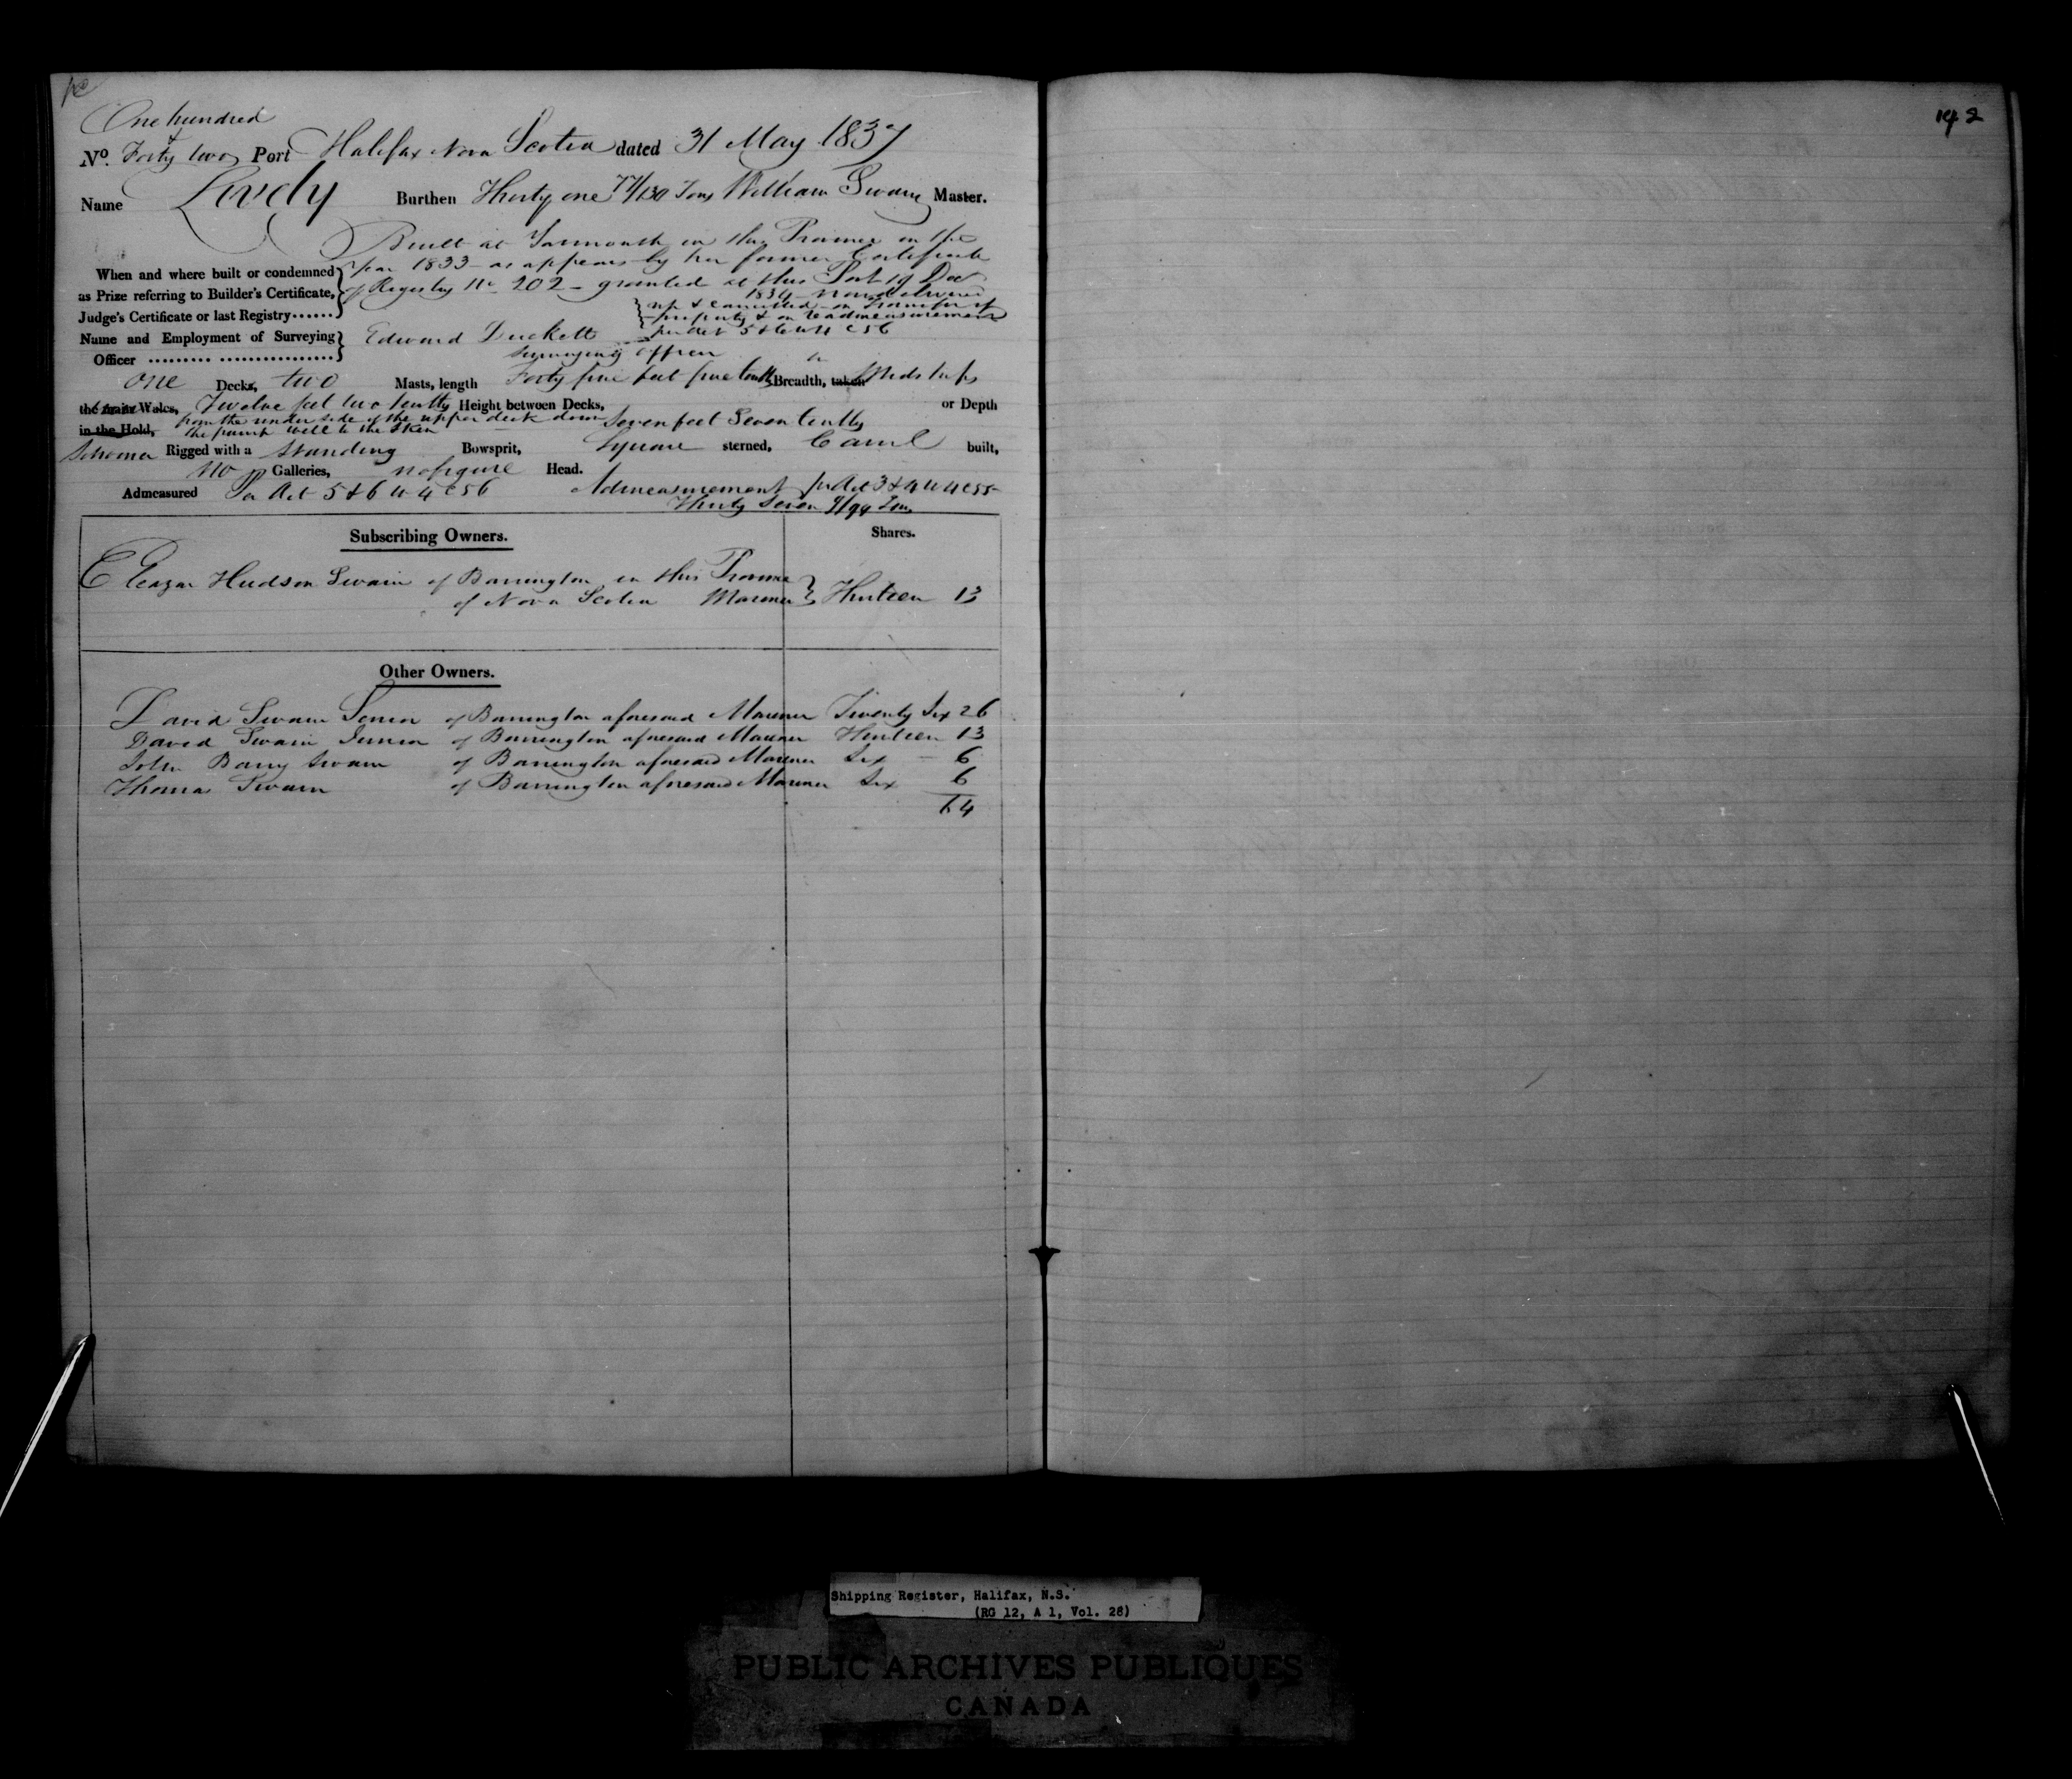 142
One hundred
&
No. Forty two Port Halifax Nova Scotia dated 31 May 1837
Name Lively Burthen Thirty one 77/130 Tons William Swain Master.
Built at Yarmouth in this Province in the
When and where built or condemned } year 1833 – as appears by her former Certificate
as Prize referring to Builder's Certificate, of Registry No 202 – granted at this Port 19 Decr
1834 – now delivered
Judge's Certificate or last Registry...... up & cancelled – on transfer of
property & on readmeasurement
per Act 5 & 6 W 4 C 56
Name and Employment of Surveying } Edward Duckett
Officer ......... ................ Surveying Officer
One Decks, two Masts, length Forty five feet five tenths Breadth, taken in Midships
the main Wales, Twelve feet two tenths Height between Decks, or Depth
in the Hold, from the under side of the upper deck down Seven feet Seven tenths
the pump well to the Skin
Schooner Rigged with a Standing Bowsprit, Square sterned, Carvel built,
No Galleries, no figure Head.
Admeasured Per Act 5 & 6 W 4 C 56 Admeasurement per Act 3 & 4 W 4 C 55
Thirty Seven Tons
Subscribing Owners. Shares.
Eleazar Hudson Swain of Barrington in this Province
of Nova Scotia Mariner } Thirteen 13
Other Owners.
David Swain Senior of Barrington aforesaid Mariner Twenty Six 26
David Swain Junior of Barrington aforesaid Mariner Thirteen 13
John Barry Swain of Barrington aforesaid Mariner Six – 6
Thomas Swain of Barrington aforesaid Mariner Six 6
64
Shipping Register, Halifax, N.S.
(RG 12, A 1, Vol. 28)
PUBLIC ARCHIVES PUBLIQUES
CANADA